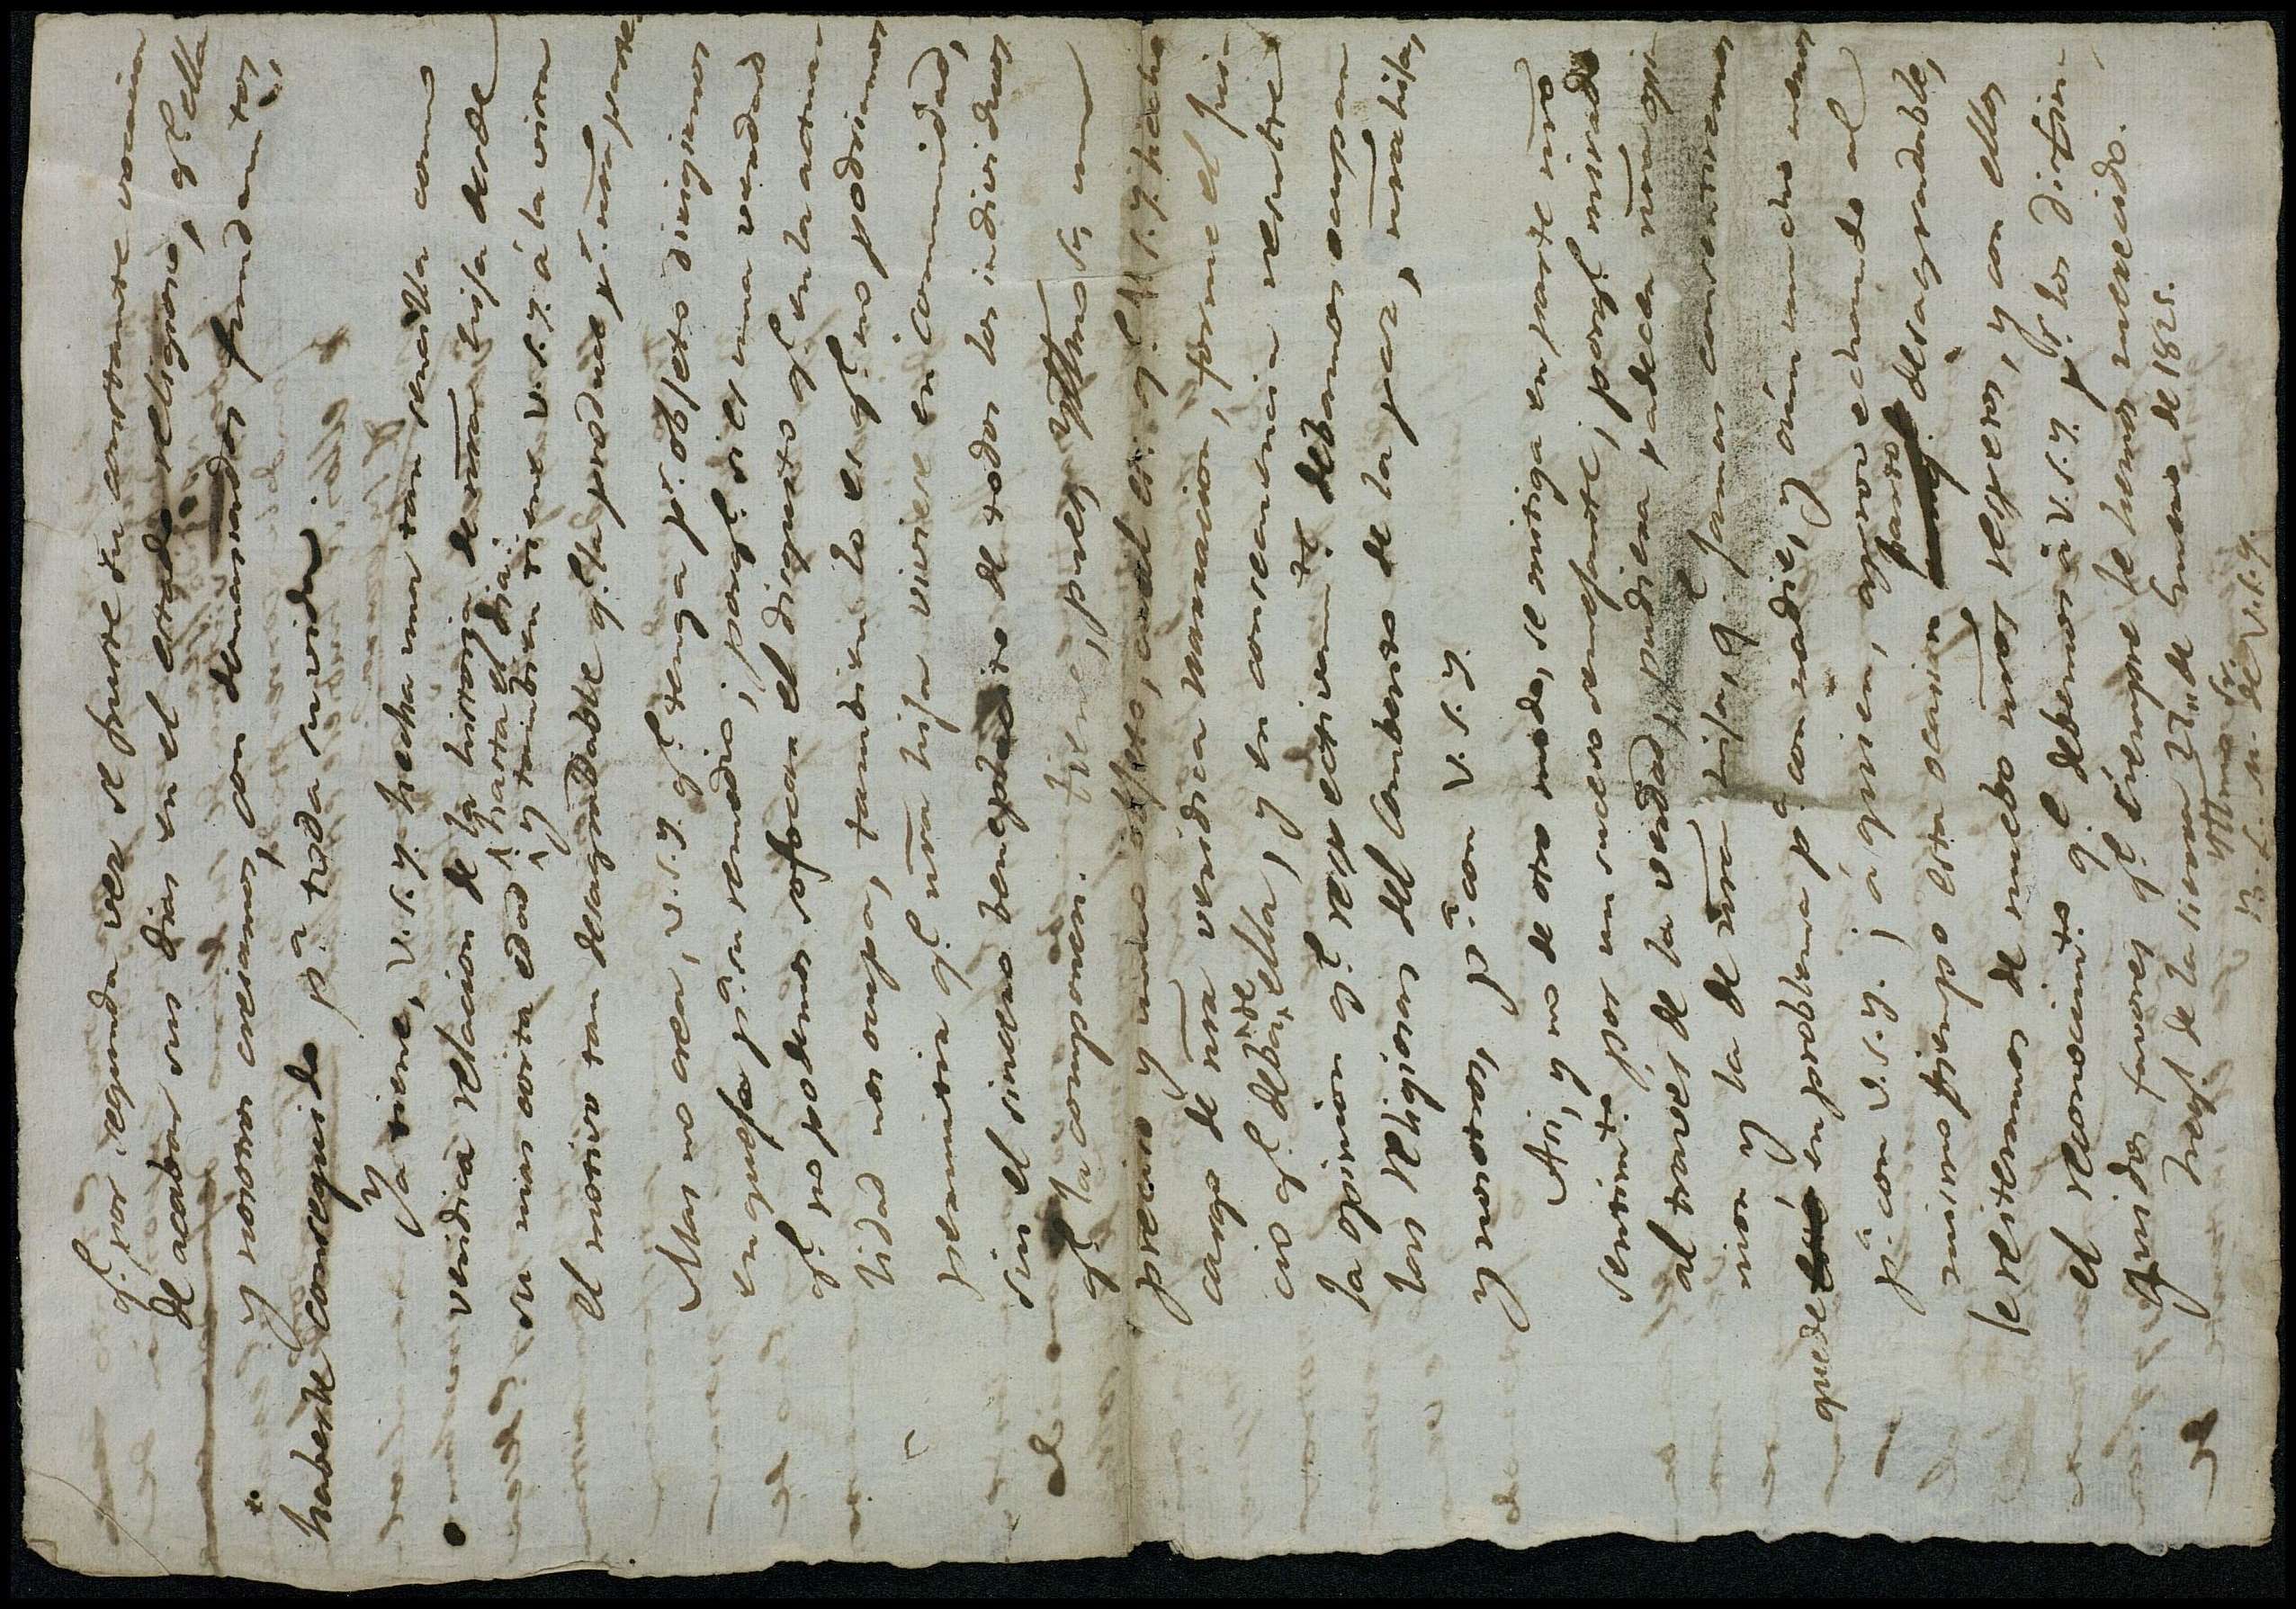 q.e por segunda vez se frustre su constante vocacion
de acabar sus dias en el estado religioso, q.e ella
y nosotros creiamos, con demasiados fundamentos,
haberse conseguido p.a toda su vida.
Ya tiene, V.S.Y. hecha una tan sencilla como
veridica relacion de la historia de nra hija desde
su mas corta edad hasta el dia; y tambien tiene V.S.Y. á la vista
el motivo tan desagradable q.e la produce p.r nra parte.
Mas no crea, V.S.Y. q.e tenga p.r objeto dirigirnos
en quexa p.a su remedio; porq.e si es una verdad
q.e no podemos sofocar el disgusto q.e en la actua
lidad nos ocupa, tambien lo es q.e no podriamos
permitir q.e nra hija viviese en comunidad,
sin el sincero beneplacito de todos los individuos
q.e la componen. Tiene, pues Yltmo Sr, un
preciso y unico objeto, cual es: q.e V.S.Y. hecho
cargo de nra veridica narracion, forme el jui
cio q.e debite ella, y en consecuencia resulte
la opinion q.e respectivam.te debamos ocupan
las religiosas del Combento de la paz, nra hija,
y nosotros, p.a con V.S.Y.
Asi, y no de otro modo, se mitiga en parte nro
sentim.to por un suceso semejante; porq.e mirado
al traves de la verdad, pudiera padecer nra opi
nion y la de nra hija, q.e jamas consentiremos
quede en problema p.a con nadie, y aún mucho menos
p.a con V.S.Y.; á quien, aprovechando al
mismo tiempo esta ocasion, tanto desagradable,
le reiteramos de nuebo nros respetos, y con ellos
el reconocim.to q.e debemos á V.S.Y. p.r los distin
guidos favores q.e siempre le hemos merecido.
Frey.l de la Sierra 22 de Enero de 1825.
Yltmo Sr.
B. L. M. de V.S.Y.